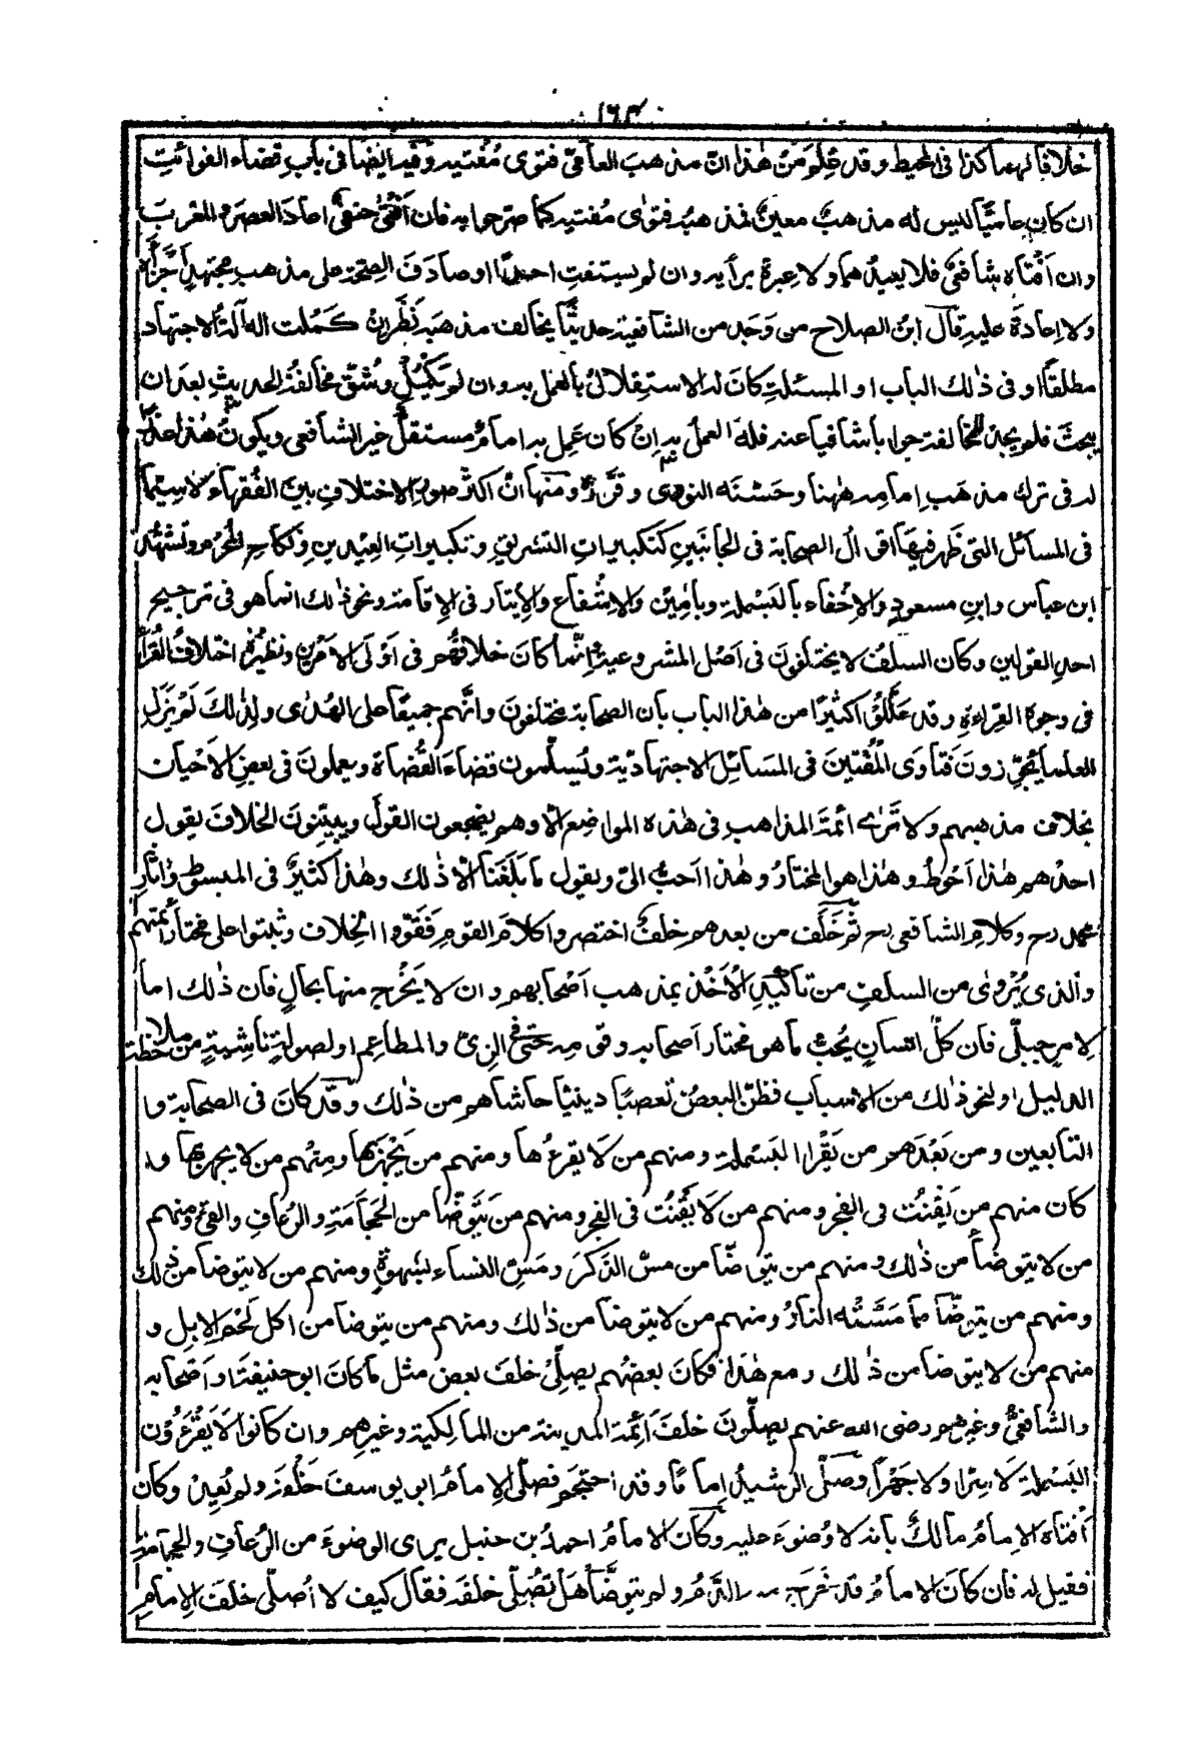 ١٦٣
خلافا لهما كذا فى المحيط وقد عُلِمَ مِنْ هٰذا انّ مذهبَ العامّى فتوى مُفتيه وفيه ايضا فى بابِ قضاء الفوائتِ
ان كان عاميًّا ليس له مذهبٌ معيّنٌ فمذهبُه فتوٰى مُفتيه كما صرحوا به فان اَفْتٰى حنفىٌّ اعادَ العصرَ والمغربَ
وان اَفْتاه شافعىٌّ فلا يعيدُهما ولا عِبرةَ برأيه وان لم يستفتِ احدًا او صادَفَ الصِحّةَ على مذهبِ مجتهدٍ اَجْزَأَه
ولا اِعادةَ عليه قال ابنُ الصلاح من وَجَد من الشافعية حديثًا يخالف مذهبَه نَظَر اِنْ كَمُلت له اٰلةُ الاجتهاد
مطلقًا او فى ذٰلك الباب او المسئلةِ كانَ له الاستقلالُ بالعمل به وان لم تَكْمُل وشقّ مخالفةُ الحديثِ بعد ان
يبحثَ فلم يجد للمخالفة جوابا شافيا عنه فله العملُ به اِنْ كان عَمِل به امامٌ مستقلٌّ غير الشافعى ويكونُ هٰذا عذرًا
له فى ترك مذهَبِ اِمامِه هٰهنا وحَسّنَه النووى وقَرَّرَه ومنها انّ اكثرَ صورِ الاختلافِ بين الفُقهاء لاسِيّما
فى المسائل التى ظَهرَ فيها اقوالُ الصحابة فى الجانبَينِ كتكبيراتِ التشريقِ وتكبيراتِ العِيْدينِ ونكاحِ المُحْرِم وتَشهُّدِ
ابن عباس وابنِ مسعودٍ والاِخْفاء بالبَسْملةِ وبآمِيْن والاِشفاعِ والاِيتار فى الاِقامة ونحو ذٰلك انما هو فى ترجيح
احدِ القولين وكان السلفُ لا يختلفونَ فى اَصْل المشروعيةِ وانّما كانَ خلافُهم فى اَوْلَى الاَمْرَيْنِ ونظيرُه اختلافُ القُرّاءِ
فى وجوهِ القِراءةِ وقد عَلَّلُوْا كثيرًا من هٰذا الباب بأن الصحابةَ مختلفونَ وانَّهم جميعًا على الهُدٰى ولِذٰلكَ لَمْ يَزَلِ
العلماءُ يُجَوِّزونَ فَتاوَى المُفْتِيْنَ فى المسَائِلِ الاجتهاديّة ويُسلّمون قضاءَ القُضاةِ ويعملونَ فى بعضِ الاَحْيانِ
بخلافِ مذهبهم ولا تَرٰى ائمةَ المذاهبِ فى هٰذه المواضِع الّا وهم يضجعون القولَ ويبيّنونَ الخلافَ يقول
احدُهم هٰذا اَحْوطُ وهٰذا هو المختارُ وهٰذا احبُّ الىّ ويقول ما بَلَغَنَا الّا ذٰلك وهٰذا كثيرٌ فى المبسوطِ وآثارِ
محمد رح وكلامِ الشافعى رح ثم خَلَفَ من بعدهم خلفٌ اختصروا كلامَ القومِ فَقَوَّوا الخِلاف وثَبتوا على مختارِ اَئمّتهم
والذى يُرْوٰى من السلفِ من تاكيْدِ الاَخْذ بمذهب اَصْحابهم وان لا يَخْرج منها بحالٍ فان ذٰلك اما
لاِمرٍ جبلّى فان كلّ انسانٍ يُحبُّ ما هو مختار اَصحابه وقومِه حتى فى الزِىّ والمطاعِم او لصولةٍ ناشِيةٍ من ملاحظة
الدليل او لنحو ذٰلك من الاسباب فظنّ البعضُ تعصبًا دينيًّا حاشاهم من ذٰلك وقد كانَ فى الصحابة وا
التابعين ومن بَعْدَهم من يَقْرا البَسْملة ومنهم من لَا يقرءُها ومنهم من يَجْهَرُ بها ومِنْهم من لا يجهر بها و
كان منهم من يَقْنُتُ فى الفجر ومنهم من لَا يَقْنُتُ فى الفجر ومنهم من يَتَوضّأ من الحَجَامَةِ والرُعافِ والقئِ ومنهم
من لا يتوضأ من ذٰلك ومنهم من يتوضّأ من مسِّ الذَّكَرِ ومَسِّ النساء بشهوةٍ ومنهم من لا يتوضا من ذٰلك
ومنهم من يتوضّأ مما مَسَّتْه النارُ ومنهم من لا يتوضا من ذٰلك ومنهم من يتوضا من اكل لَحْمِ الاِبلِ و
منهم مَن لا يتوضا من ذٰلك ومع هٰذا فكانَ بعضُهم يصلّى خلفَ بعض مثل ما كانَ ابو حنيفةَ او اَصْحابه
والشافعىُّ وغيرهم رضى الله عنهم يصلّونَ خلفَ اَئِمّة المدينة من المالِكية وغيرِهم وان كانوا لَا يَقْرَءُوْن
البَسْملة لَا سِرّا ولا جَهْرًا وصلّى الرشيدُ اِمامًا وقد احتجَم فصلّى الاِمامُ ابو يوسفَ خَلْفَه ولم يُعِدْ وكان
اَفتاه الاِمامُ مالكٌ بأنه لا وُضوءَ عليه وكان الامامُ احمدُ بن حنبل يرى الوضوءَ من الرُعافِ والحِجامةِ
فقيل له فان كانَ الامامُ قد خَرَجَ منه الدَّمُ ولم يتوضّأ هَلْ تُصَلِّى خلفَه فقال كيف لا اُصلّى خلفَ الِامامِ